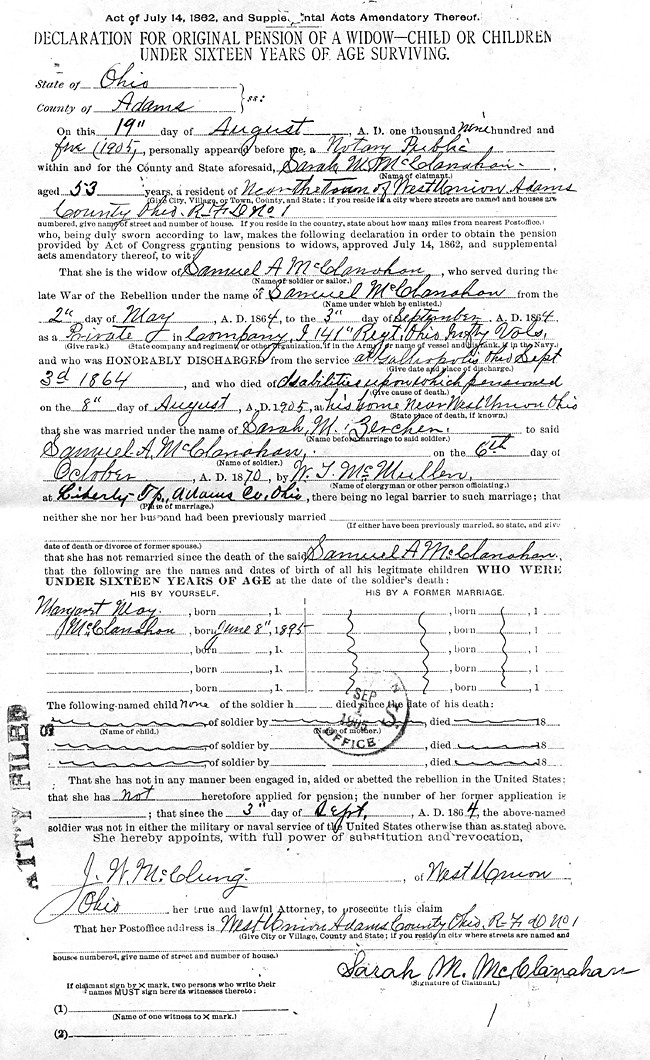 Act of July 14, 1862, and Supplemental Acts Amendatory Thereof.
DECLARATION FOR ORIGINAL PENSION OF A WIDOW—CHILD OR CHILDREN
UNDER SIXTEEN YEARS OF AGE SURVIVING.
State of Ohio
County of Adams } ss:
On this 19" day of August, A. D. one thousand nine hundred and
five (1905, personally appeared before me, a Notary Public
within and for the County and State aforesaid, Sarah M. McClanahan.
(Name of claimant.)
aged 53 years, a resident of Near the Town of West Union Adams
(Give City, Village, or Town, County, and State; if you reside in a city where streets are named and houses are
County Ohio. R.F.D No 1
numbered, give name of street and number of house. If you reside in the country, state about how many miles from nearest Postoffice.)
who, being duly sworn according to law, makes the following declaration in order to obtain the pension
provided by Act of Congress granting pensions to widows, approved July 14, 1862, and supplemental
acts amendatory thereof, to wit
That she is the widow of Samuel A McClanahan, who served during the
(Name of soldier or sailor.)
late War of the Rebellion under the name of Samuel McClanahan from the
(Name under which he enlisted.)
2" day of May, A. D. 1864, to the 3" day of September A. D. 1864
as a Private in Company I 141" Regt. Ohio Infty Vols,
(Give rank.) (State company and regiment, or other organization, if in the Army, or name of vessel and rank, if in the Navy.)
and who was HONORABLY DISCHARGED from the service at Gallipolis Ohio Sept
(Give date and place of discharge.)
3d 1864, and who died of disabilities upon which pensioned
(Give cause of death.)
on the 8" day of August, A. D. 1905, at his home Near West Union Ohio
(State place of death, if known.)
that she was married under the name of Sarah. M. Zerchen. to said
(Name before marriage to said soldier.)
Samuel A. McClanahan, on the 6th day of
(Name of soldier.)
October, A. D. 1870, by W. T. McMullen,
(Name of clergyman or other person officiating.)
at Liberty Tp, Adams Co, Ohio, there being no legal barrier to such marriage; that
(Place of marriage.)
neither she nor her husband had been previously married
(If either have been previously married, so state, and give
date of death or divorce of former spouse.)
that she has not remarried since the death of the said Samuel A McClanahan,
that the following are the names and dates of birth of all his legitmate children WHO WERE
UNDER SIXTEEN YEARS OF AGE at the date of the soldier's death:
HIS BY YOURSELF. HIS BY A FORMER MARRIAGE.
Margaret May , born , 1 , born , 1
McClanahan , born June 8", 1895 , born , 1
, born , 1 , born , 1
, born , 1 , born , 1
, born , 1 , born , 1
The following-named child None of the soldier h died since the date of his death:
of soldier by , died 18
(Name of child.) (Name of mother.)
of soldier by , died 18
of soldier by , died 18
SEP
1905
OFFICE
ATTY FILED
That she has not in any manner been engaged in, aided or abetted the rebellion in the United States;
that she has not heretofore applied for pension; the number of her former application is
; that since the 3" day of Sept, A. D. 1864, the above-named
soldier was not in either the military or naval service of the United States otherwise than as stated above.
She hereby appoints, with full power of substitution and revocation,
J. W. McClung, of West Union
Ohio her true and lawful Attorney, to prosecute this claim
That her Postoffice address is West Union Adams County Ohio, R.F.D No 1
(Give City or Village, County and State; if you reside in city where streets are named and
houses numbered, give name of street and number of house.)
Sarah M. McClanahan
(Signature of Claimant.)
If claimant sign by X mark, two persons who write their
names MUST sign here as witnesses thereto:
(1)
(Name of one witness to X mark.)
(2)
1